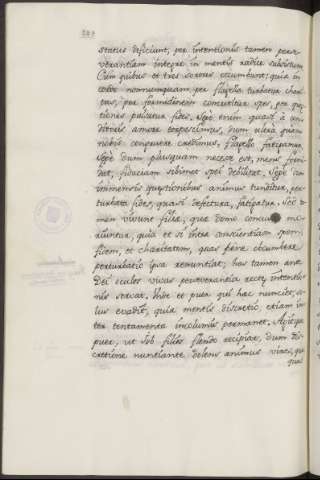 status deficiunt, per intentionis tamen perse-
verantiam integre in mentis radice subsistunt.
Cum quibus et tres sorores occumbunt: quia in
corde nonnumquam per flagella turbatur chari-
tas, per formidinem concutitur spes, per quæ-
stiones pulsatur fides. Sæpe enim quasi a con-
ditoris amore torpescimus, dum ultra quam
nobis congruere credimus, flagello fatigamur.
Sæpe dum plusquam necesse est, mens formi-
dat, fiduciam sibimet spei debilitat. Sæpe dum
immensis quæstionibus animus tenditur, per-
turbata fides, quasi defectura, fatigatur. Sed ta-
men vivunt filiæ, quæ domo concussa mo-
riuntur, quia etsi intra conscientiam spem,
fidem, et charitatem, quas pene occumbere
perturbatio ipsa renuntiat; has tamen ante
Dei oculos vivas perseverantia rectæ intentio-
nis servat. Unde et puer qui hæc nunciet, so-
lus evadit, quia mentis discretio, etiam in-
ter tentamenta incolumis permanet. Agitque
puer, ut Job filios flendo recipiat, dum dis-
cretione nuntiante dolens animus vires, quas
quas